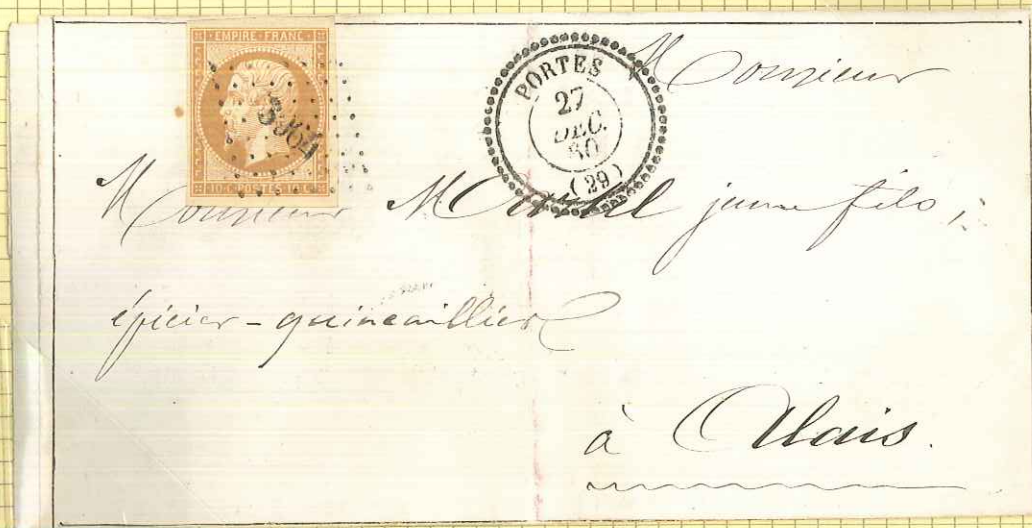 EMPIRE FRANC
3964
10 C POSTES 10 C
PORTES
27
DEC.
60
(29)
Monsieur
Monsieur Martel jeune fils,
épicier-quincaillier
à Alais.